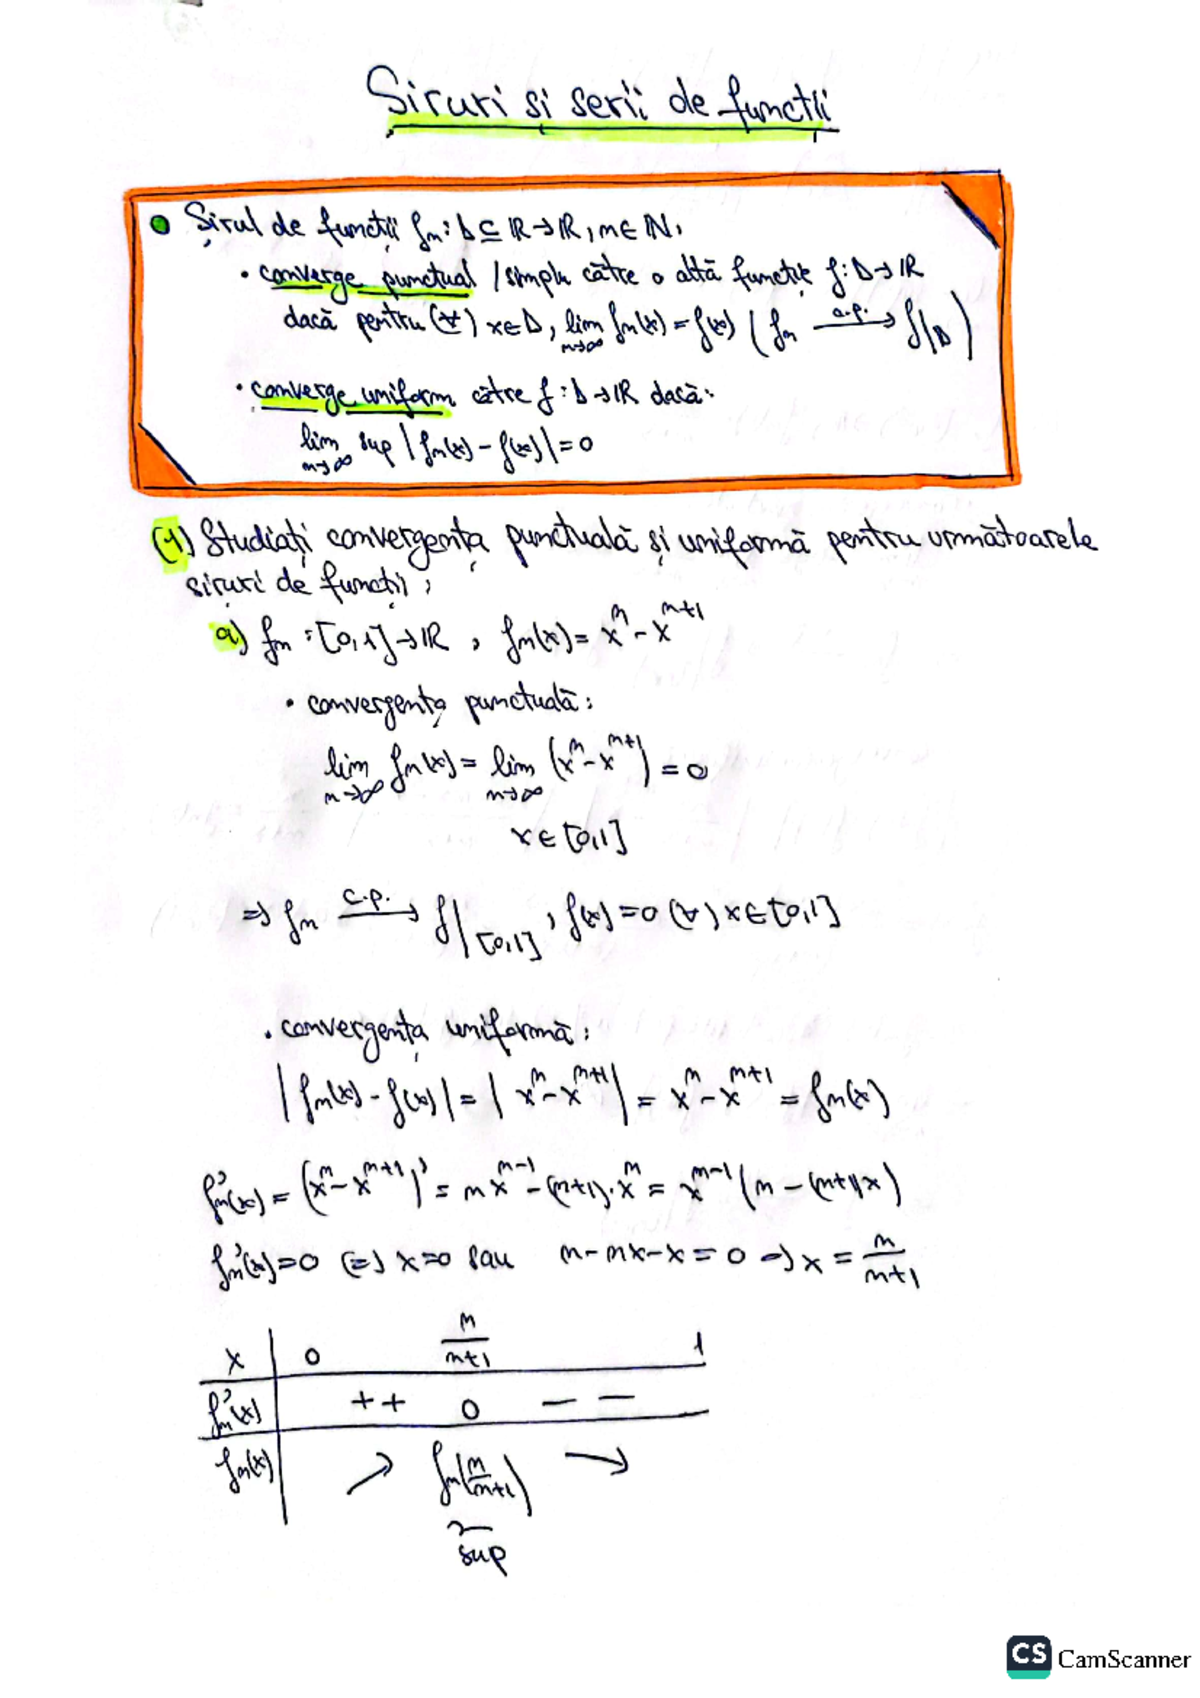 Șiruri și serii de funcții
• Șirul de funcții fn : D ⊆ ℝ → ℝ, n ∈ ℕ,
• converge punctual / simplu către o altă funcție f : D → ℝ
dacă pentru (∀) x ∈ D, lim n→∞ fn(x) = f(x) ( fn —c.p.→ f|D )
• converge uniform către f : D → ℝ dacă:
lim n→∞ sup | fn(x) - f(x) | = 0
(1.) Studiați convergența punctuală și uniformă pentru următoarele
șiruri de funcții:
a) fn : [0,1] → ℝ, fn(x) = x^n - x^(n+1)
• convergența punctuală:
lim n→∞ fn(x) = lim n→∞ (x^n - x^(n+1)) = 0
x ∈ [0,1]
⇒ fn —c.p.→ f|[0,1], f(x) = 0 (∀) x ∈ [0,1]
• convergența uniformă:
| fn(x) - f(x) | = | x^n - x^(n+1) | = x^n - x^(n+1) = fn(x)
fn'(x) = (x^n - x^(n+1))' = nx^(n-1) - (n+1)·x^n = x^(n-1) (n - (n+1)x)
fn'(x) = 0 (=) x = 0 sau n - nx - x = 0 ⇒ x = n/(n+1)
x | 0 n/(n+1) 1
fn'(x) | + + 0 — —
fn(x) | ↗ fn(n/(n+1)) ↘
sup
CS CamScanner